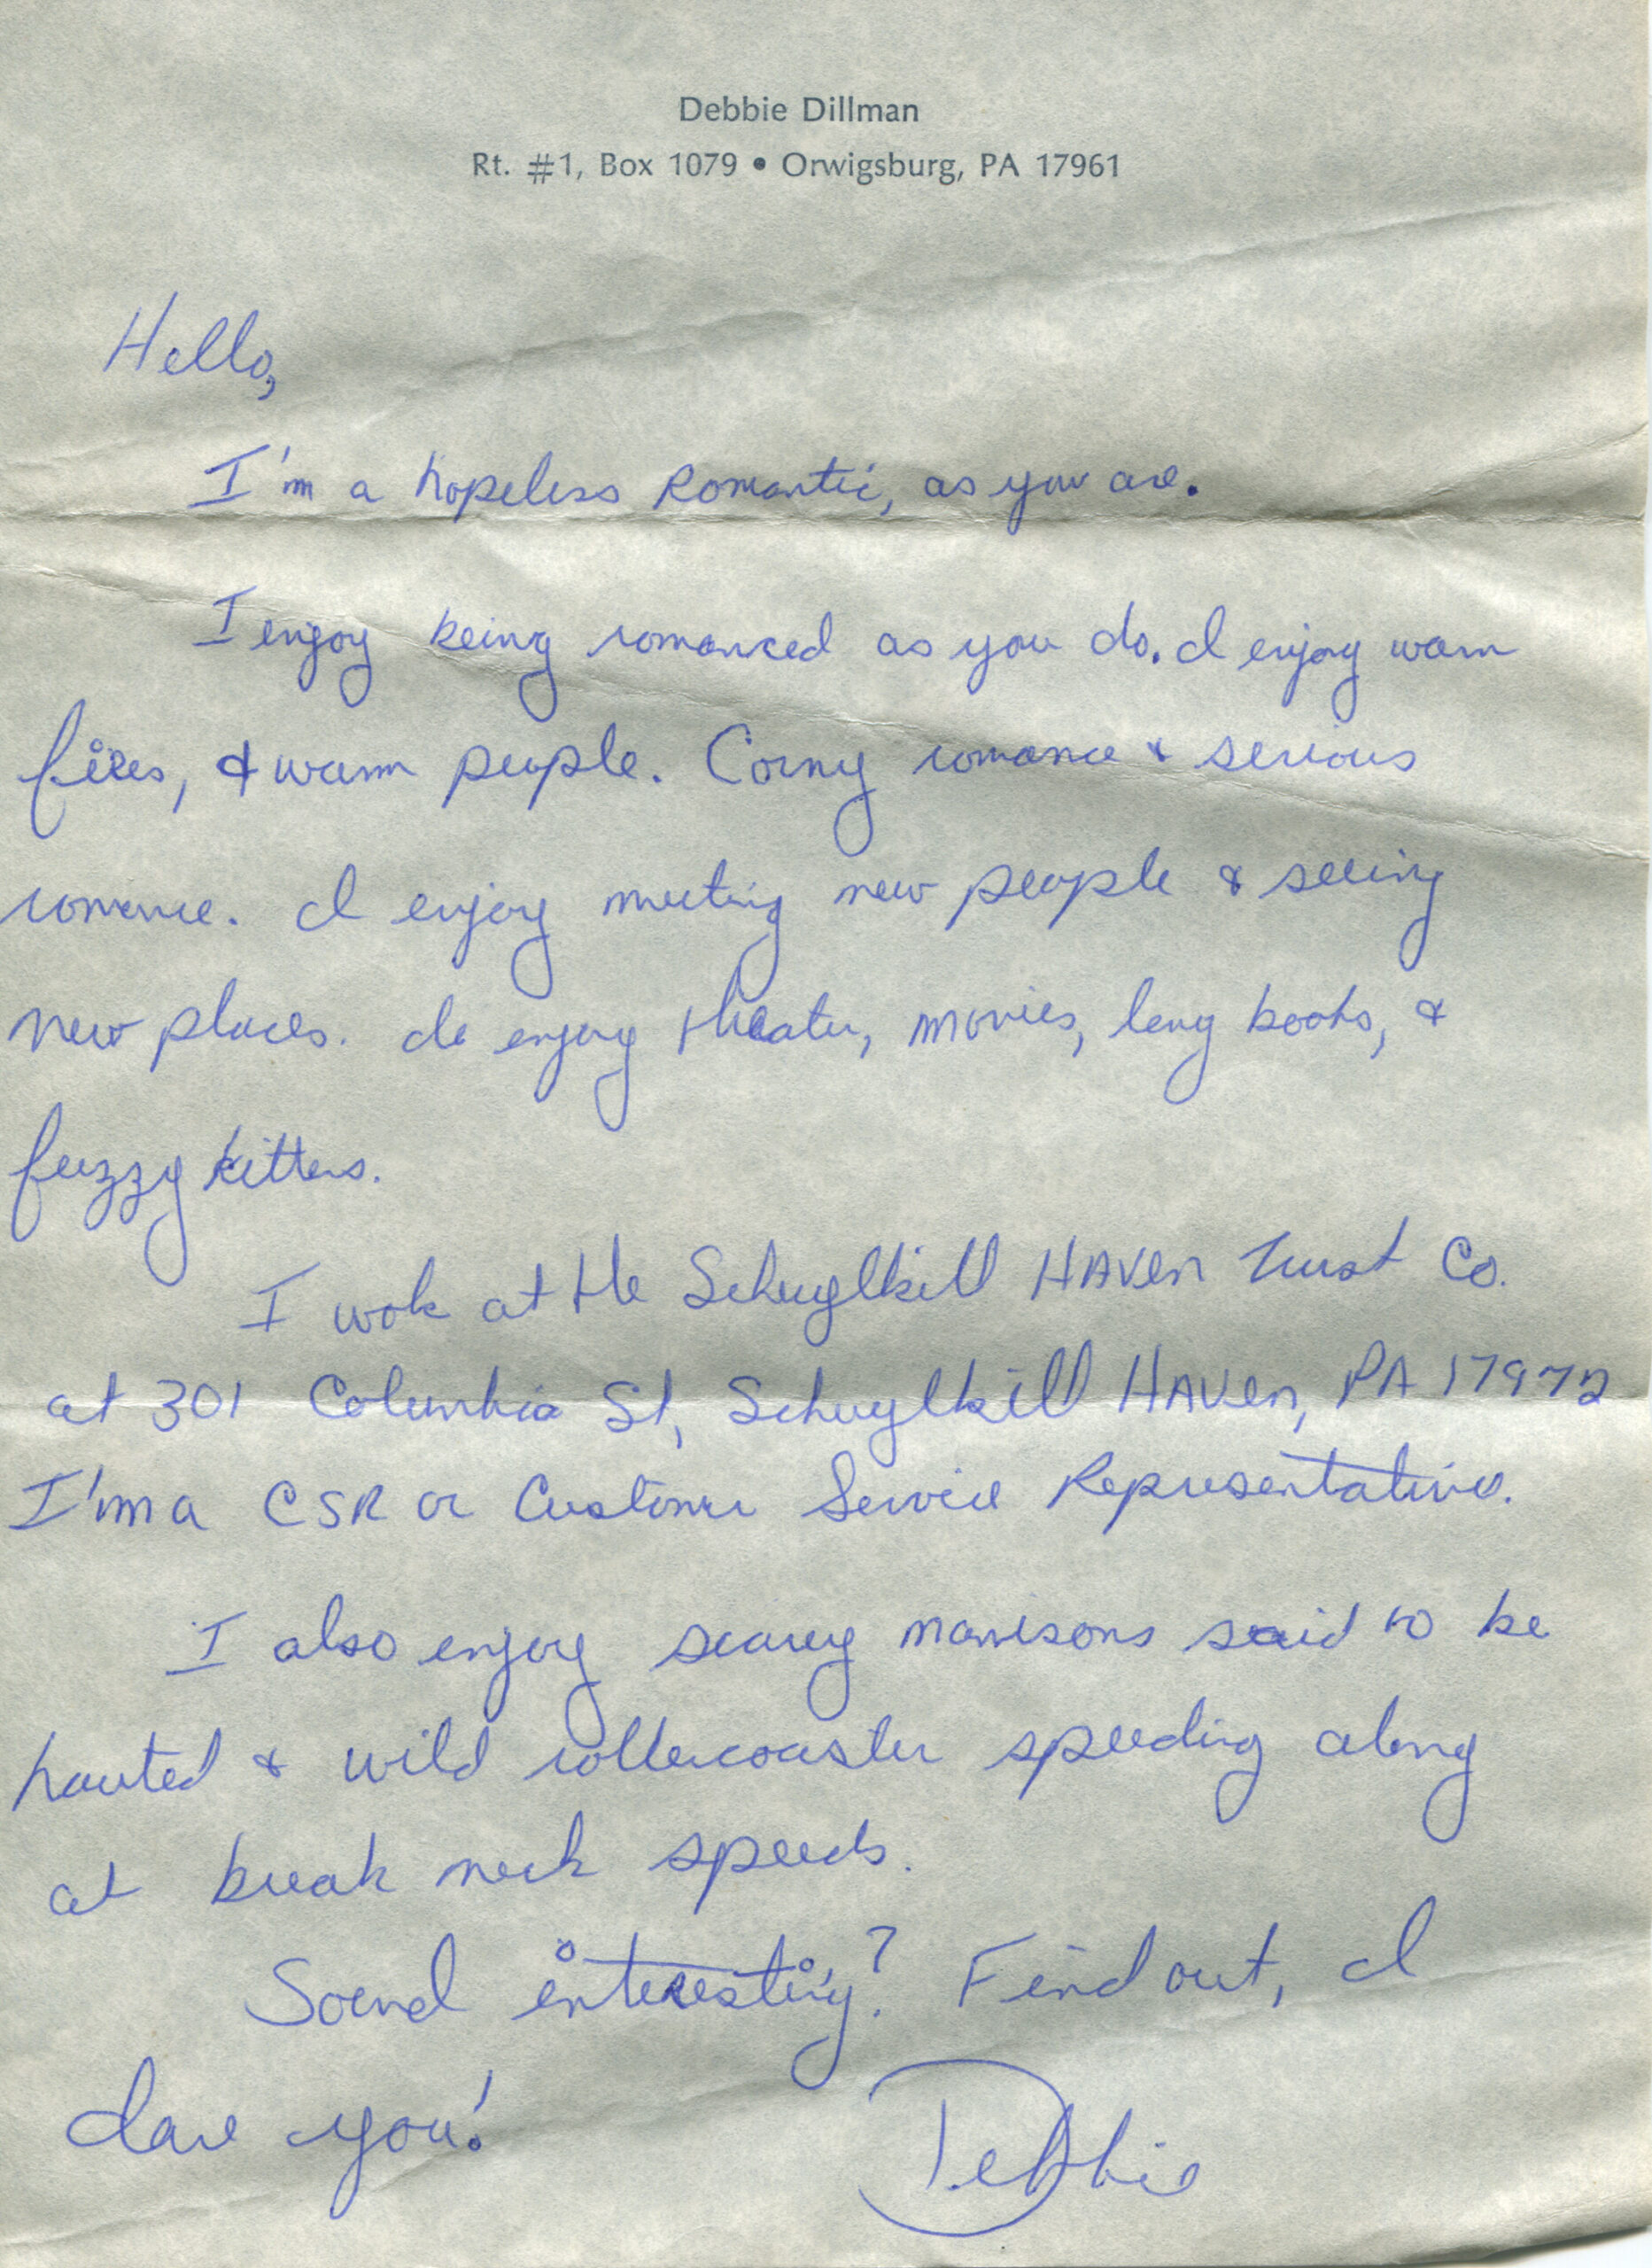 Debbie Dillman
Rt. #1, Box 1079 • Orwigsburg, PA 17961
Hello,
I'm a hopeless Romantic, as you are.
I enjoy being romanced as you do. I enjoy warm
fires, & warm people. Corny romance & serious
romance. I enjoy meeting new people & seeing
new places. I enjoy theater, movies, long books, &
fuzzy kittens.
I wok at the Schuylkill HAVen Trust Co.
at 301 Columbia St, Schuylkill HAVen, PA 17972
I'm a CSR or Customer Service Representative.
I also enjoy scarey manisons said to be
hauted & wild rollercoaster speeding along
at break neck speeds.
Sound interesting? Find out, I
dare you!
Debbie